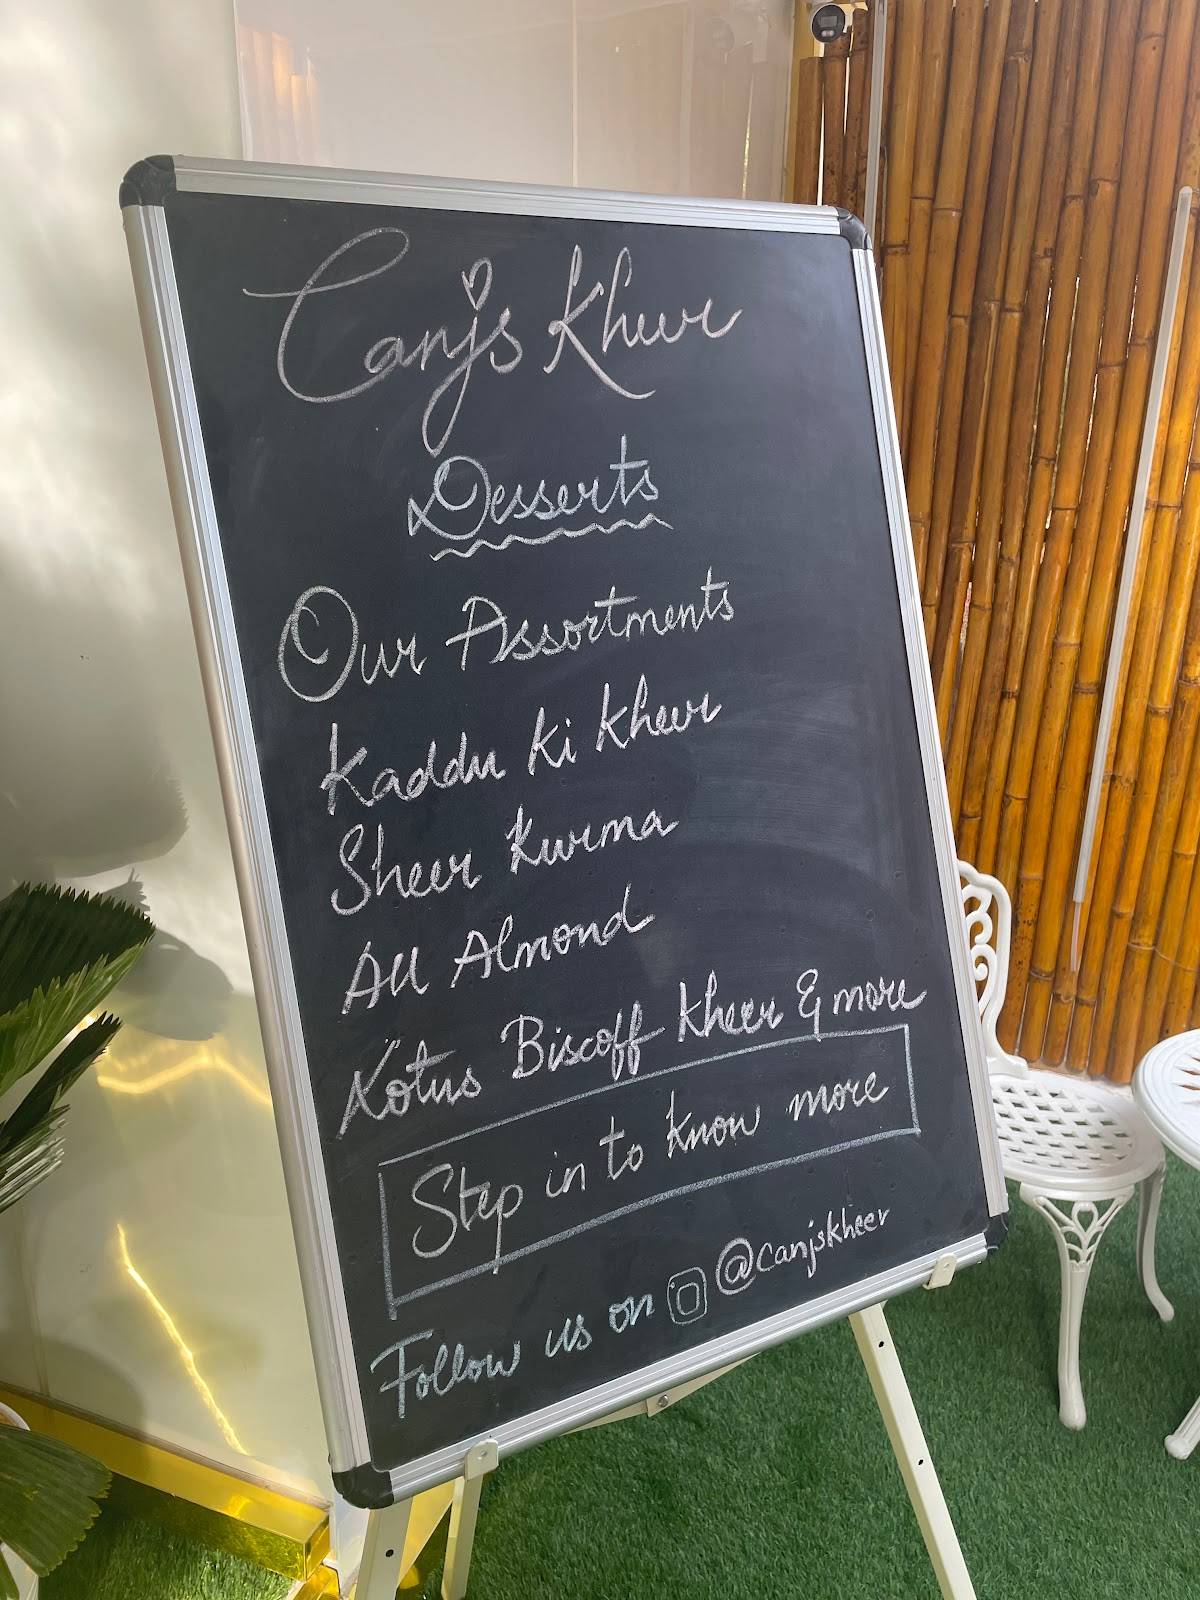 Canjs Kheer
Desserts
Our Assortments
Kaddu Ki Kheer
Sheer Kurma
All Almond
Lotus Biscoff Kheer & more
Step in to know more
Follow us on @canjskheer